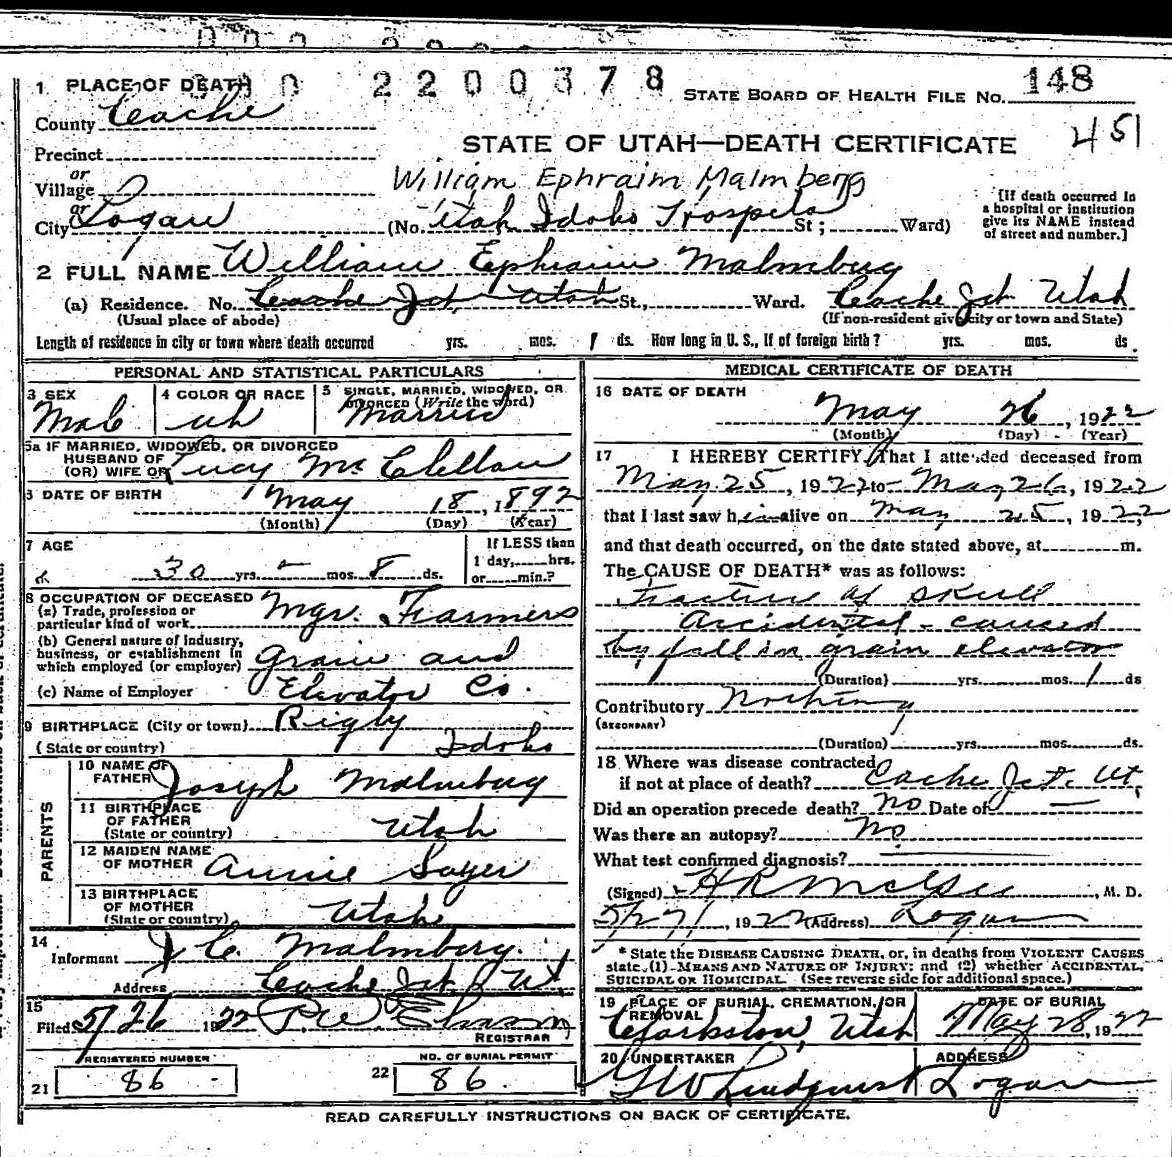 2200378
1 PLACE OF DEATH
STATE BOARD OF HEALTH FILE NO. 148
County Cache
451
STATE OF UTAH—DEATH CERTIFICATE
Precinct
or
Village
William Ephraim Malmberg
or
City Logan (No. Utah Idaho Hospital St; Ward)
[If death occurred in a hospital or institution give its NAME instead of street and number.]
2 FULL NAME William Ephraim Malmberg
(a) Residence. No. Cache Jct, Utah St., Ward. Cache Jct Utah
(Usual place of abode) (If non-resident give city or town and State)
Length of residence in city or town where death occurred yrs. mos. 1 ds. How long in U. S., if of foreign birth? yrs. mos. ds.
PERSONAL AND STATISTICAL PARTICULARS
3 SEX
Male
4 COLOR OR RACE
wh
5 SINGLE, MARRIED, WIDOWED, OR DIVORCED (Write the word)
Married
5a IF MARRIED, WIDOWED, OR DIVORCED
HUSBAND OF
(OR) WIFE OF Lucy McClellan
6 DATE OF BIRTH May 18, 1892
(Month) (Day) (Year)
7 AGE
30 yrs. – mos. 8 ds.
If LESS than
1 day, hrs.
or min.?
8 OCCUPATION OF DECEASED
(a) Trade, profession or
particular kind of work Mgr. Farmers
(b) General nature of industry,
business, or establishment in
which employed (or employer) Grain and
(c) Name of Employer Elevator Co.
9 BIRTHPLACE (City or town) Rigby
(State or country) Idaho
PARENTS
10 NAME OF
FATHER Joseph Malmberg
11 BIRTHPLACE
OF FATHER
(State or country) Utah
12 MAIDEN NAME
OF MOTHER Annie Sayer
13 BIRTHPLACE
OF MOTHER
(State or country) Utah
14
Informant J C. Malmberg.
Address Cache Jct Ut
15
Filed 5/26 1922
REGISTRAR
REGISTERED NUMBER
21 86
NO. OF BURIAL PERMIT
22 86.
MEDICAL CERTIFICATE OF DEATH
16 DATE OF DEATH
May 26, 1922
(Month) (Day) (Year)
17 I HEREBY CERTIFY, That I attended deceased from
May 25, 1922, to May 26, 1922
that I last saw him alive on May 25, 1922,
and that death occurred, on the date stated above, at m.
The CAUSE OF DEATH* was as follows:
Fracture of skull
Accidental - caused
by fall in grain elevator
(Duration) yrs. mos. 1 ds
Contributory Nothing
(SECONDARY)
(Duration) yrs. mos. ds.
18 Where was disease contracted
if not at place of death? Cache Jct. Ut.
Did an operation precede death? no Date of —
Was there an autopsy? No
What test confirmed diagnosis?
(Signed) H R McGee, M. D.
5/27/, 1922 (Address) Logan
* State the DISEASE CAUSING DEATH, or, in deaths from VIOLENT CAUSES
state (1) MEANS AND NATURE OF INJURY; and (2) whether ACCIDENTAL,
SUICIDAL OR HOMICIDAL. (See reverse side for additional space.)
19 PLACE OF BURIAL, CREMATION, OR
REMOVAL
Clarkston, Utah
DATE OF BURIAL
May 28, 1922
20 UNDERTAKER
G W Lindquist
ADDRESS
Logan
READ CAREFULLY INSTRUCTIONS ON BACK OF CERTIFICATE.